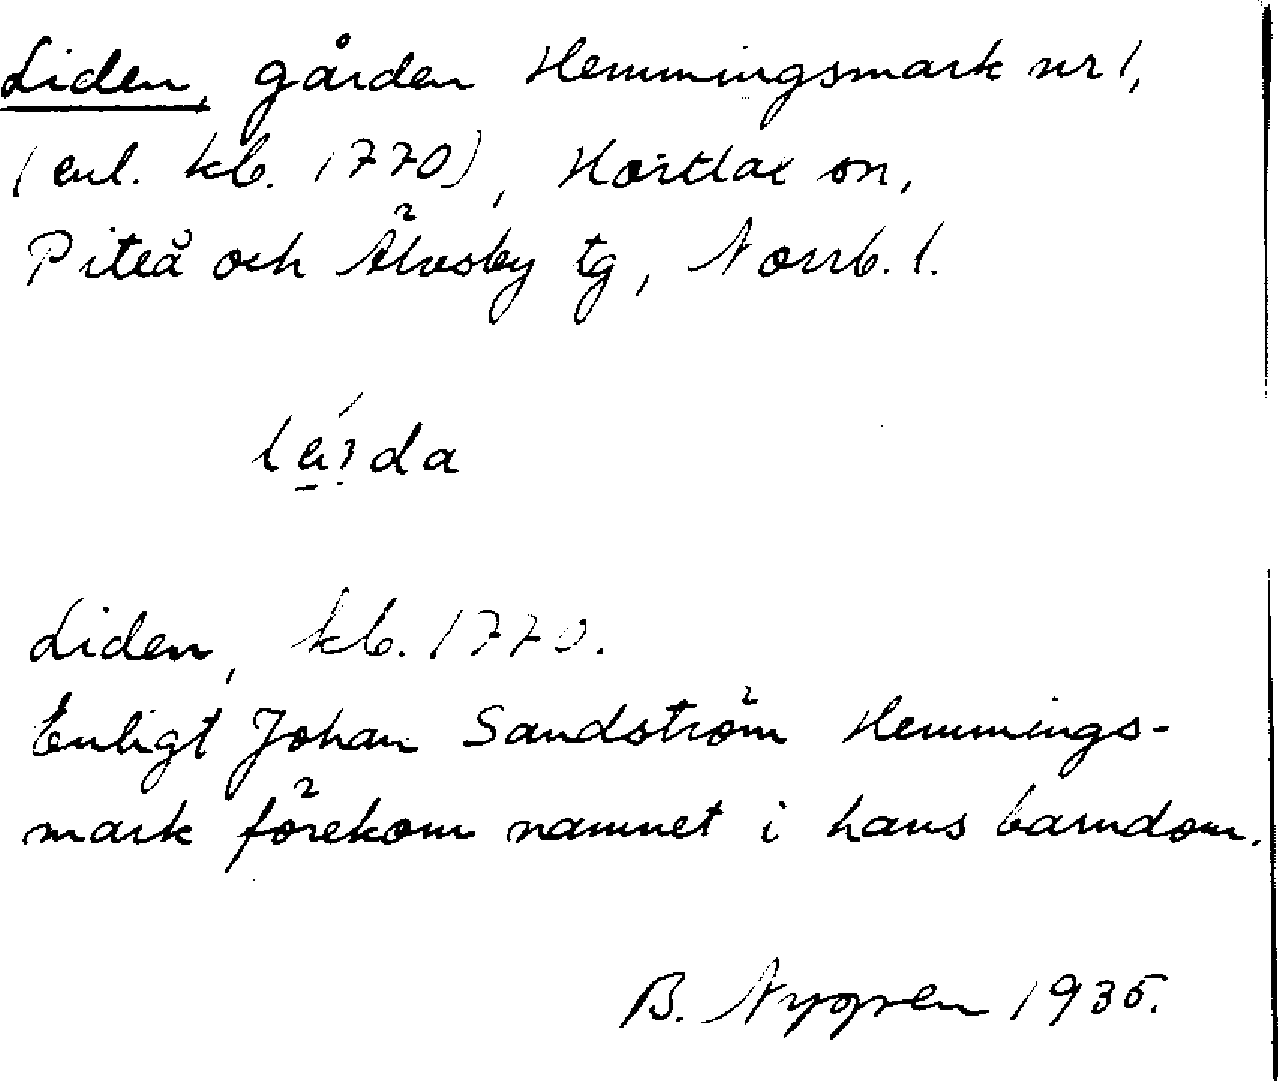 Liden, gården Hemmingsmark nr 1,
(enl. kb. 1770), Hortlax sn,
Piteå och Älvsby tg, Norrb. l.
Liden, kb. 1770.
Enligt Johan Sandström Hemmings-
mark förekom namnet i hans barndom.
B. Nygren 1935.